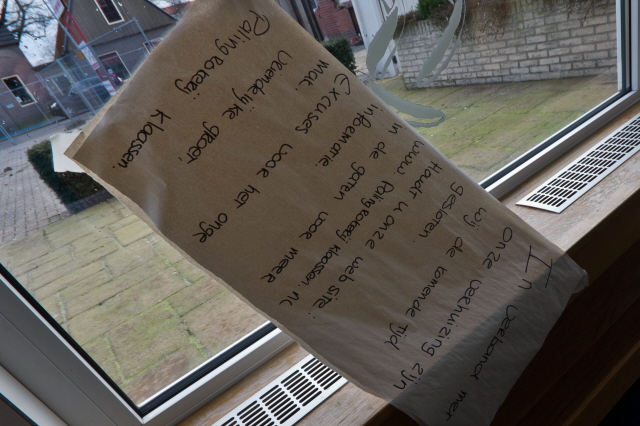 In Verband met
Onze Verhuizing zijn
wij de komende tijd
gesloten.
Houdt u onze website:
www Palingrokerij klaassen.nl
in de gaten voor meer
informatie.
Excuses voor het onge
mak.
Vriendelijke groet,
Palingrokerij Klaassen.